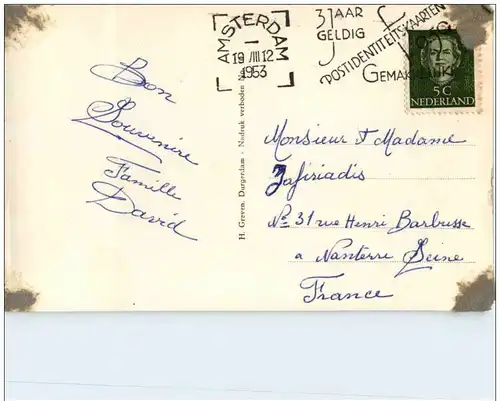 AMSTERDAM
19 VIII 12
1953
3 JAAR
GELDIG
POSTIDENTITEITSKAARTEN
5 C
NEDERLAND
Bon
Souvenire
Famille
David
H. Greven. Durgerdam - Nadruk verboden No.
Monsieur et Madame
Zafiriadis
No 31 rue Henri Barbusse
a Nanterre Seine
France